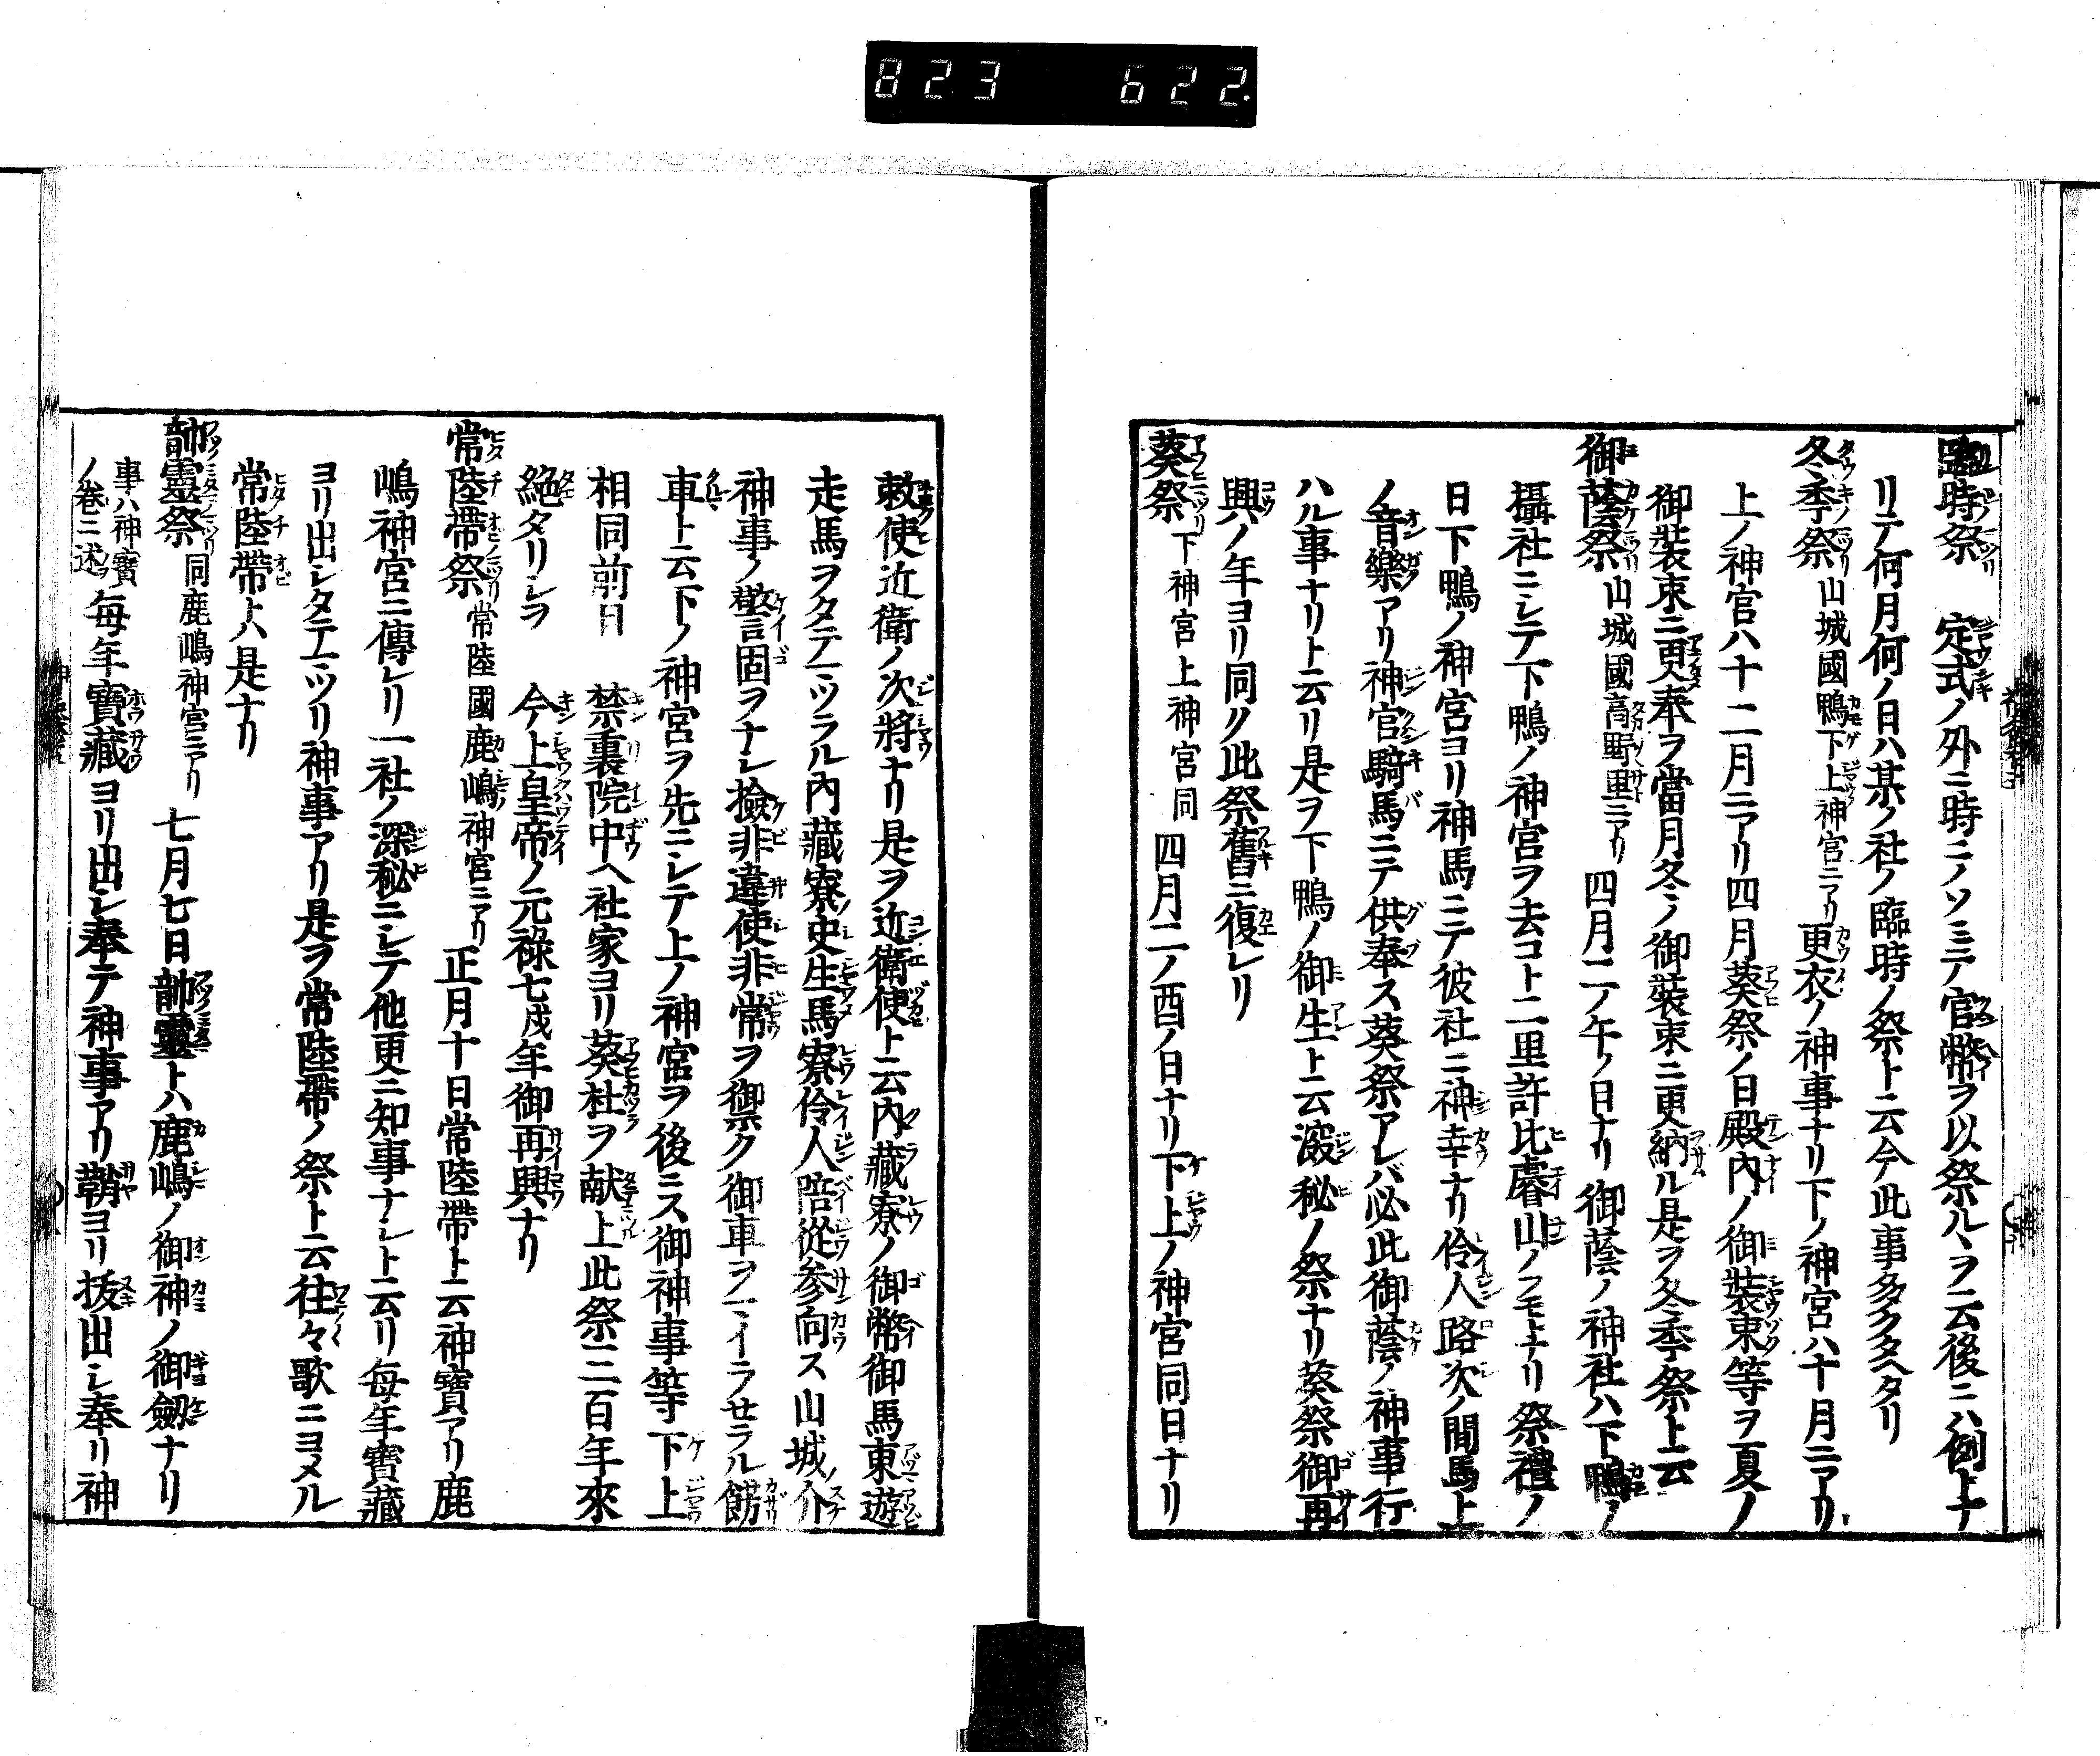 823 622.
臨時祭 定式ノ外ニ時ニノソミテ官幣ヲ以祭ルヽヲ云後ニハ例トナ
リテ何月何ノ日ハ某ノ社ノ臨時ノ祭ト云今此事多クタヘタリ
冬季祭 山城國鴨下上神宮ニアリ 更衣ノ神事ナリ下ノ神宮ハ十月ニアリ
上ノ神宮ハ十二月ニアリ四月葵祭ノ日殿內ノ御裝束等ヲ夏ノ
御裝束ニ更奉ヲ當月冬ノ御裝束ニ更納ル是ヲ冬季祭ト云
御蔭祭 山城國高野里ニアリ 四月二ノ午ノ日ナリ御蔭ノ神社ハ下鴨ノ
攝社ニシテ下鴨ノ神宮ヲ去コト二里許比睿山ノフモトナリ祭禮ノ
日下鴨ノ神宮ヨリ神馬ニテ彼社ニ神幸ナリ伶人路次ノ間馬上
ノ音樂アリ神官騎馬ニテ供奉ス葵祭アレバ必此御蔭ノ神事行
ハル事ナリト云リ是ヲ下鴨ノ御生ト云深秘ノ祭ナリ葵祭御再
興ノ年ヨリ同ク此祭舊ニ復レリ
葵祭 下神宮上神宮同 四月二ノ酉ノ日ナリ下上ノ神宮同日ナリ
敕使近衛ノ次將ナリ是ヲ近衛使ト云內藏寮ノ御幣御馬東遊
走馬ヲタテマツラル內藏寮ノ史生馬寮伶人陪從參向ス山城ノ介
神事ノ警固ヲナシ撿非違使非常ヲ禦ク御車ヲマイラセラル餝
車ト云下ノ神宮ヲ先ニシテ上ノ神宮ヲ後ニス御神事等下上
相同前日 禁裏院中ヘ社家ヨリ葵桂ヲ献上此祭三百年來
絶タリシヲ 今上皇帝ノ元祿七戌年御再興ナリ
常陸帶祭 常陸國鹿嶋神宮ニアリ 正月十日常陸帶ト云神寶アリ鹿
嶋神宮ニ傳レリ一社ノ深秘ニシテ他更ニ知事ナシト云リ每年寶藏
ヨリ出シタテマツリ神事アリ是ヲ常陸帶ノ祭ト云往々歌ニヨメル
常陸帶トハ是ナリ
韴靈祭 同鹿嶋神宮ニアリ 七月七日韴靈トハ鹿嶋ノ御神ノ御劔ナリ
事ハ神寶ノ卷ニ述 每年寶藏ヨリ出シ奉テ神事アリ鞘ヨリ拔出シ奉リ神